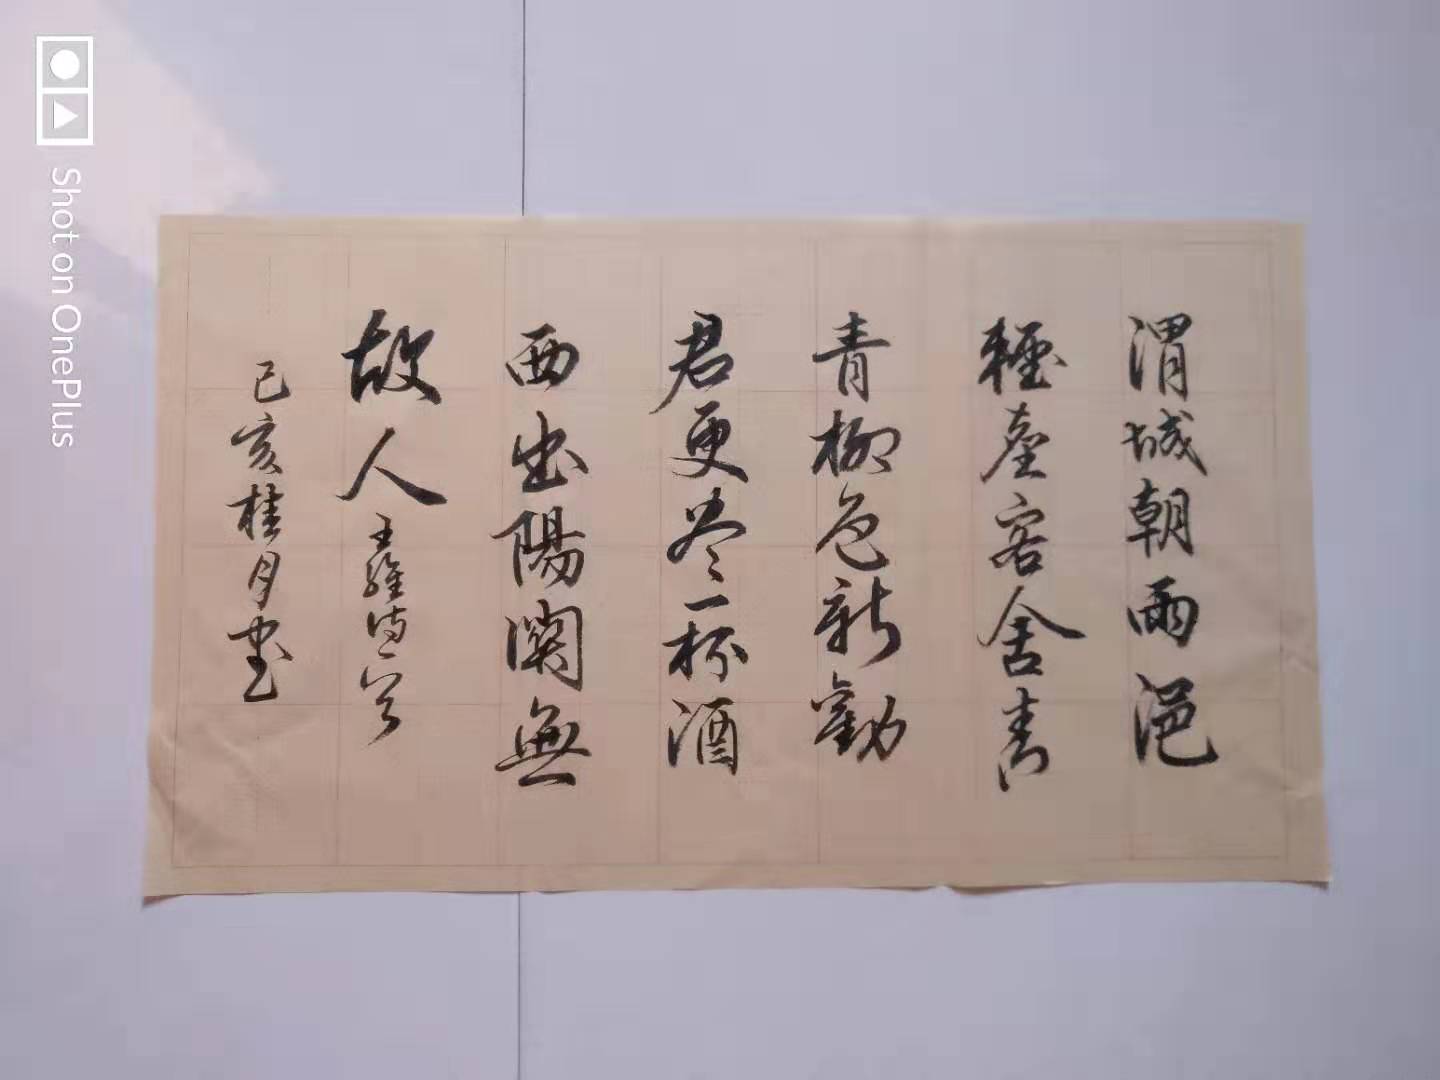 渭城朝雨浥
輕塵客舍青
青柳色新勸
君更尽一杯酒
西出陽關無
故人 王維诗一首
己亥桂月书
Shot on OnePlus